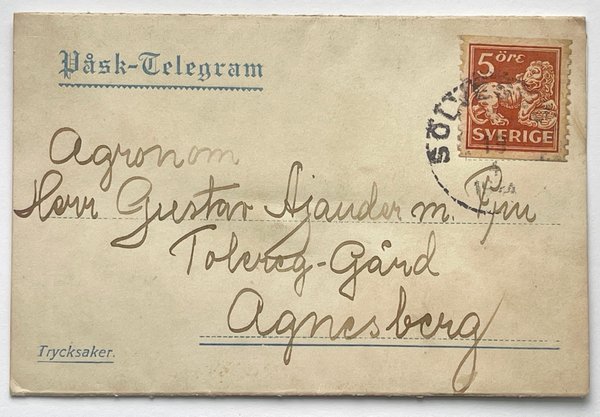 Påsk-Telegram
5 ÖRE
SVERIGE
SÖLVE
Agronom
Herr Gustav Ajander m. Fru
Tolereg-Gård
Agnesberg
Trycksaker.